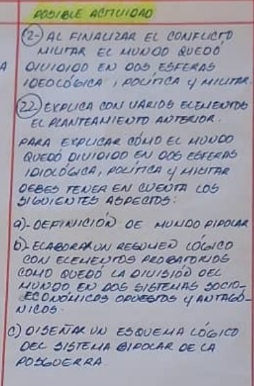 POSIBLE ACTIVIDAD
2- AL FINALIZAR EL CONFLICTO
MILITAR EL MUNDO QUEDÓ
DIVIDIDO EN DOS ESFERAS
IDEOLÓGICA, POLÍTICA Y MILITAR.
22 EXPLICA CON VARIOS ELEMENTOS
EL PLANTEAMIENTO ANTERIOR.
PARA EXPLICAR CÓMO EL MUNDO
QUEDÓ DIVIDIDO EN DOS ESFERAS
IDIOLÓGICA, POLÍTICA Y MILITAR
DEBES TENER EN CUENTA LOS
SIGUIENTES ASPECTOS:
a)- DEFINICIÓN DE MUNDO BIPOLAR
b)- ELABORAR UN RESUMEN LÓGICO
CON ELEMENTOS PROBATORIOS
COMO QUEDÓ LA DIVISIÓN DEL
MUNDO, EN DOS SISTEMAS SOCIO-
ECONÓMICOS OPUESTOS Y ANTAGÓ-
NICOS.
c) DISEÑAR UN ESQUEMA LÓGICO
DEL SISTEMA BIPOLAR DE LA
POSGUERRA